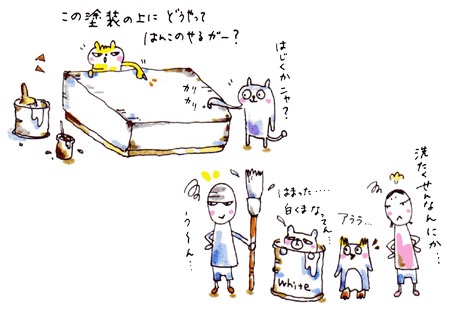 この塗装の上に どうやって
はんこのやるガー?
はじくかニャ?
カリ
カリ
洗たくせんなんにか…
はまった……
白くまなってん…
アララ…
う〜ん…
White